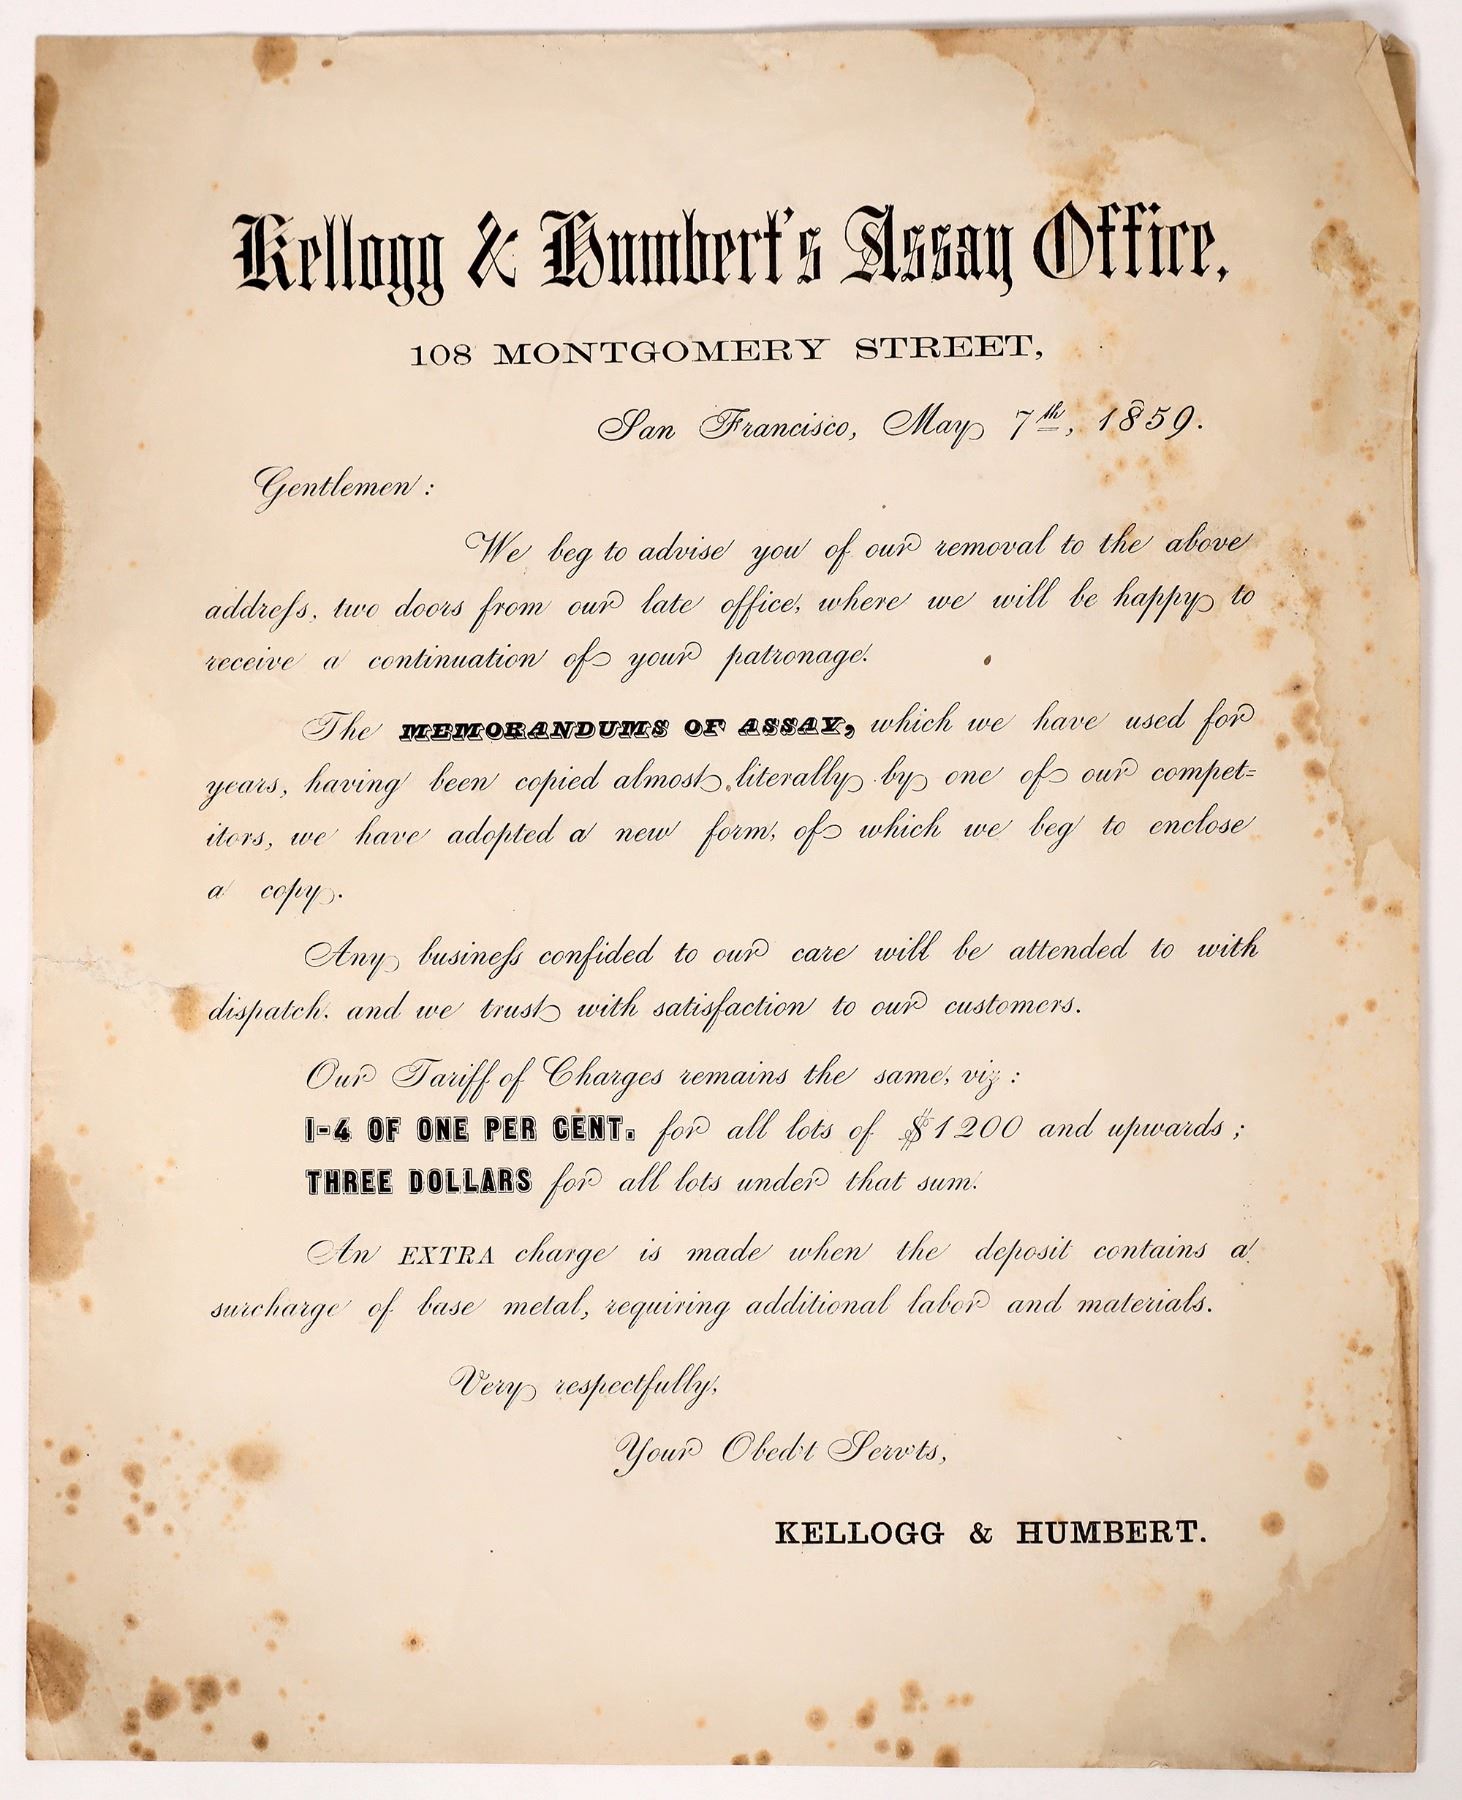 Kellogg & Humbert's Assay Office,
108 MONTGOMERY STREET,
San Francisco, May 7th, 1859.
Gentlemen:
We beg to advise you of our removal to the above
addreſs, two doors from our late office, where we will be happy to
receive a continuation of your patronage.
The MEMORANDUMS OF ASSAY, which we have used for
years, having been copied almost literally by one of our compet=
itors, we have adopted a new form, of which we beg to enclose
a copy.
Any busineſs confided to our care will be attended to with
dispatch. and we trust with satisfaction to our customers.
Our Tariff of Charges remains the same, viz:
1-4 OF ONE PER CENT. for all lots of $1200 and upwards;
THREE DOLLARS for all lots under that sum.
An EXTRA charge is made when the deposit contains a
surcharge of base metal, requiring additional labor and materials.
Very respectfully,
Your Obed't Servts,
KELLOGG & HUMBERT.